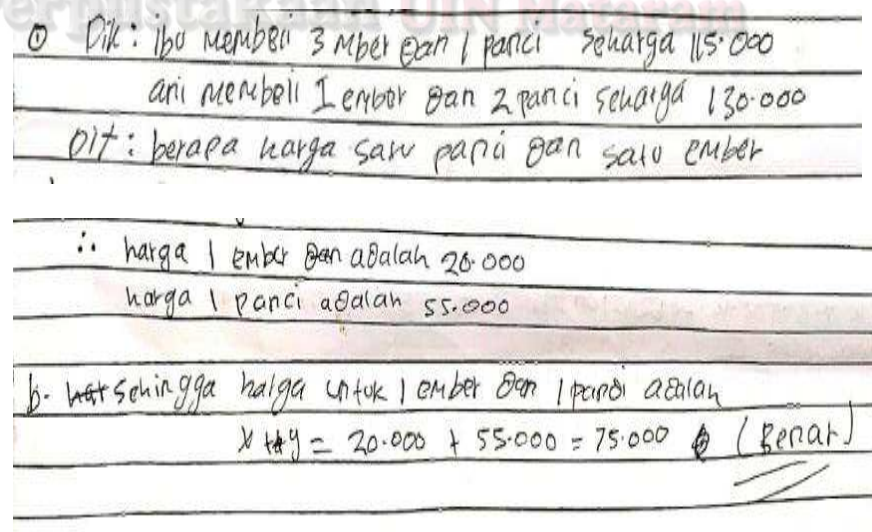 Perpustakaan UIN Mataram
① Dik : ibu membeli 3 mber dan 1 panci seharga 115.000
ani membeli 1 ember dan 2 panci seharga 130.000
Dit : berapa harga satu panci dan satu ember
∴ harga 1 ember dan adalah 20.000
harga 1 panci adalah 55.000
b. hat sehingga harga untuk 1 ember dan 1 panci adalah
x + y = 20.000 + 55.000 = 75.000 (Benar)